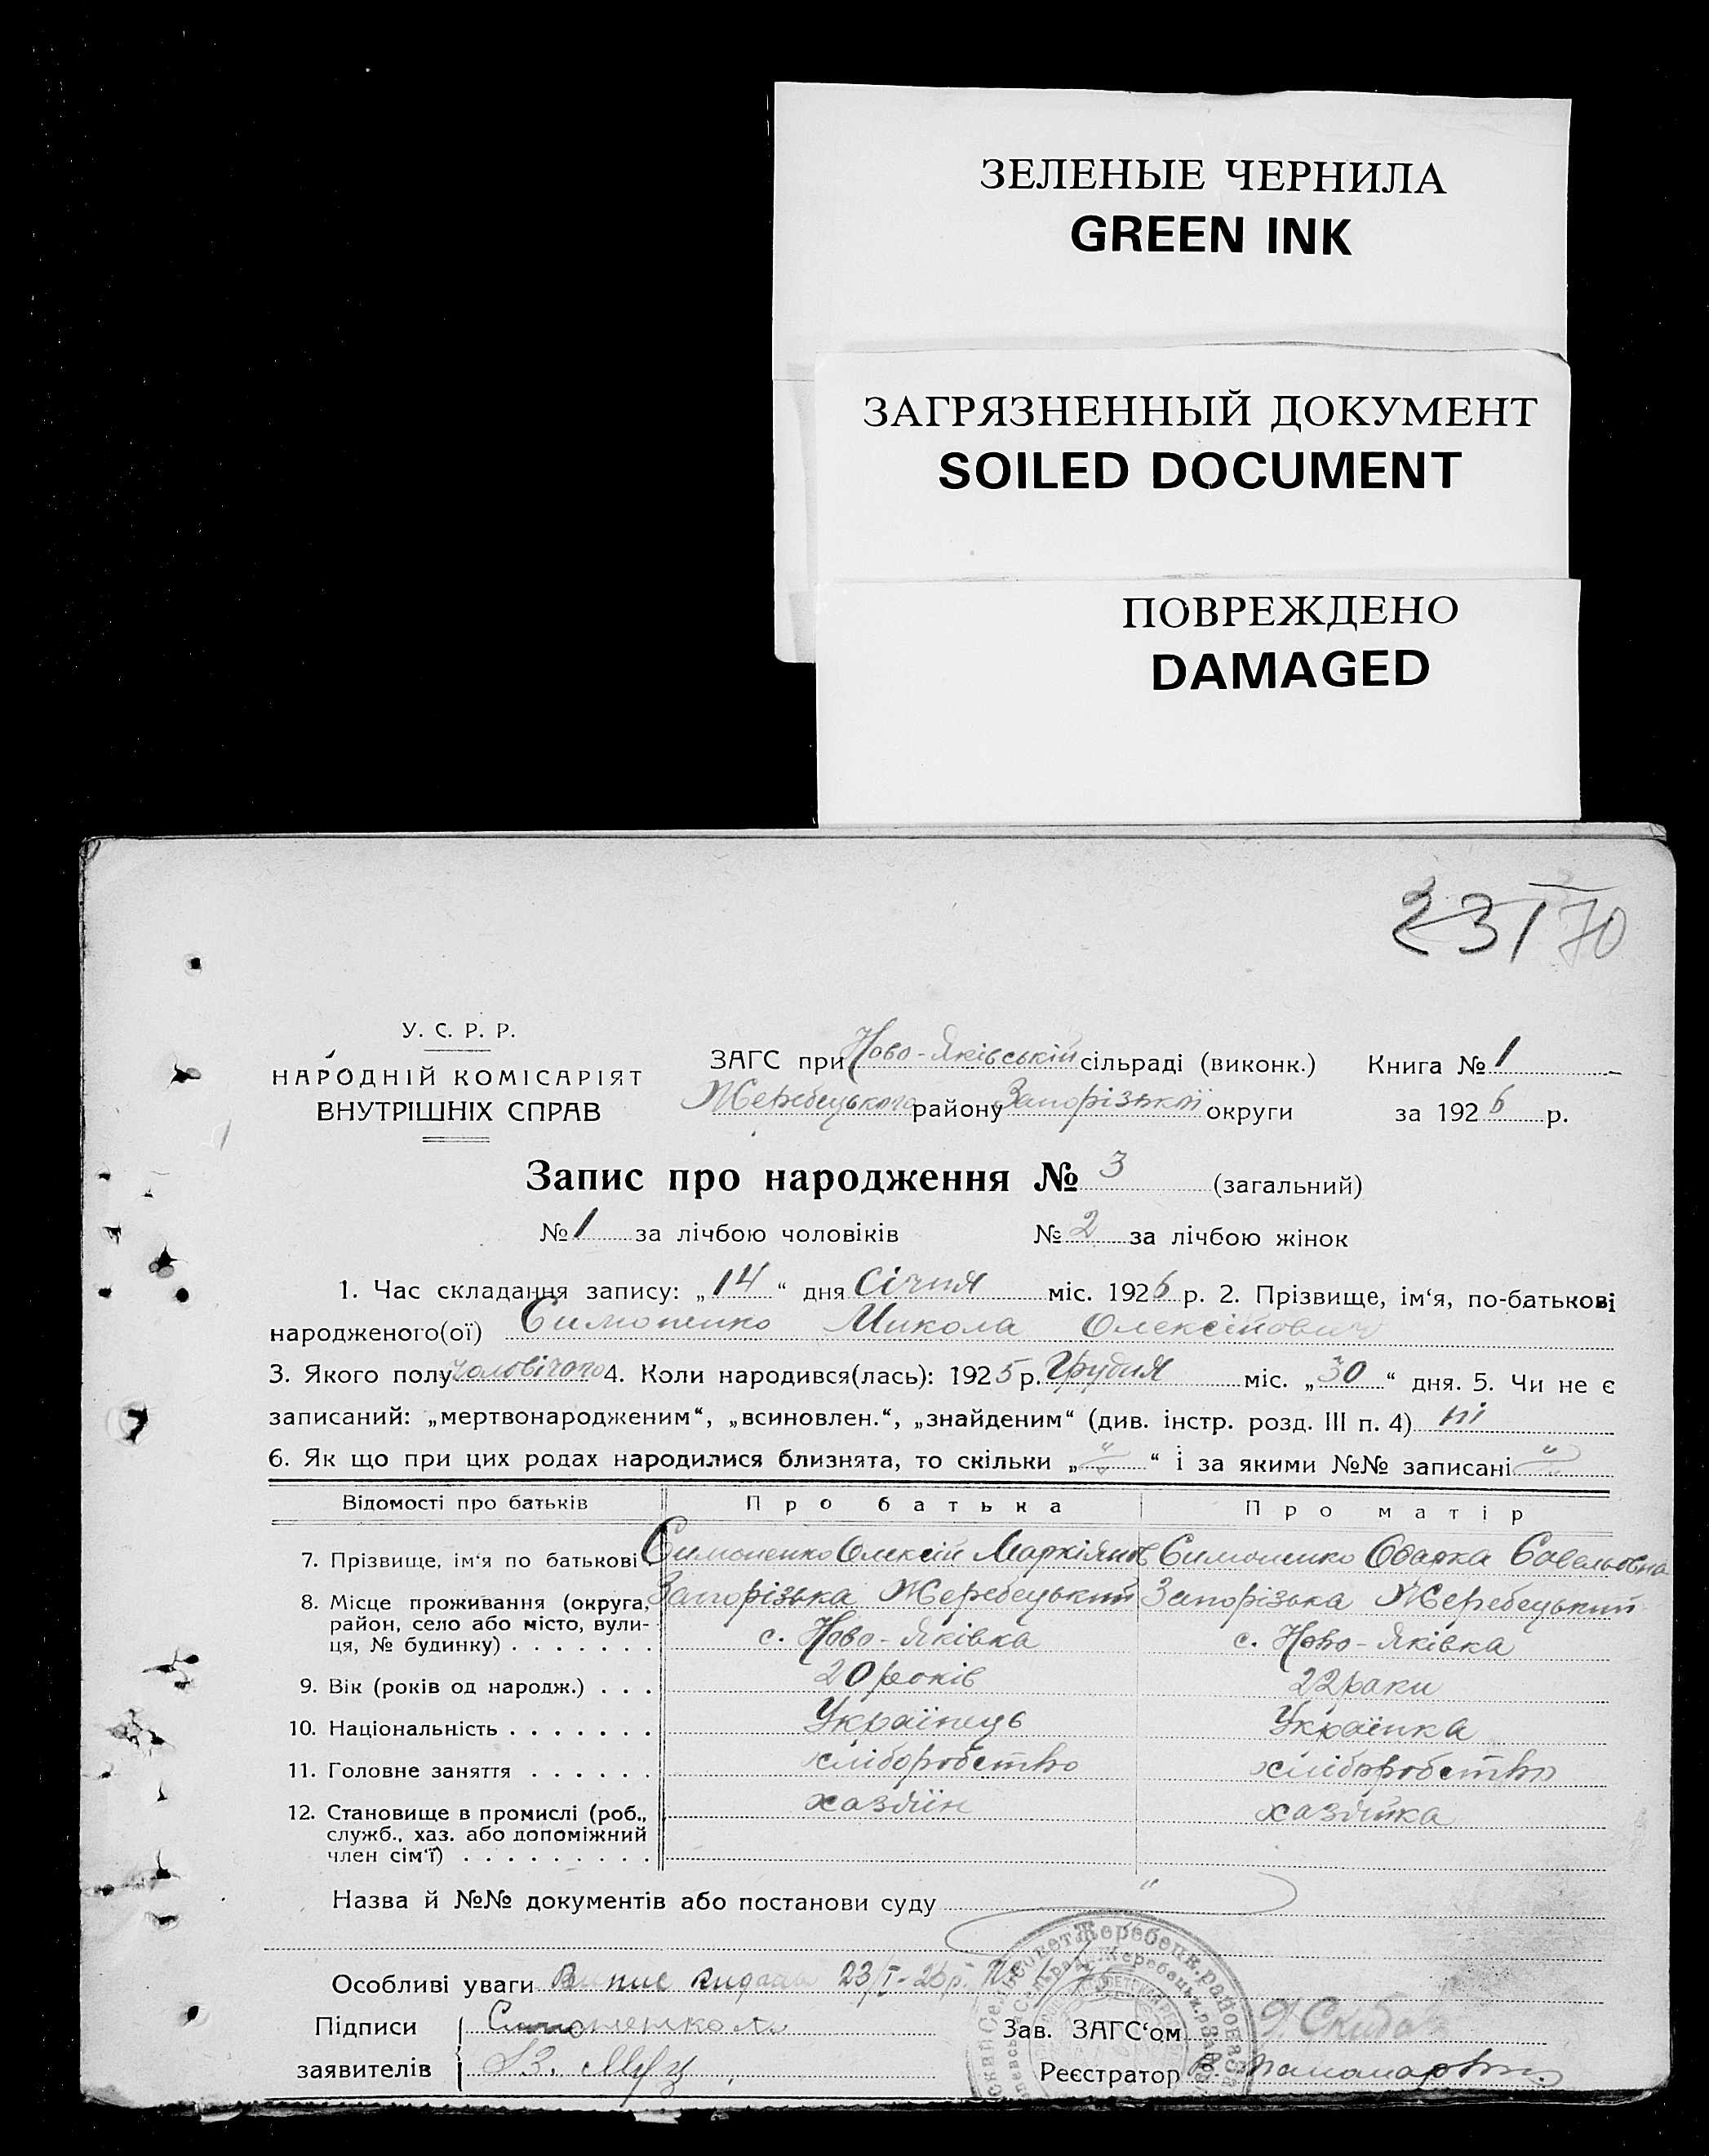 ЗЕЛЕНЫЕ ЧЕРНИЛА
GREEN INK
ЗАГРЯЗНЕННЫЙ ДОКУМЕНТ
SOILED DOCUMENT
ПОВРЕЖДЕНО
DAMAGED
231 70
У. С. Р. Р.
НАРОДНІЙ КОМІСАРІЯТ
ВНУТРІШНІХ СПРАВ
ЗАГС при Ново-Яківській сільраді (виконк.) Книга № 1
Жеребецького району Запорізької округи за 1926 р.
Запис про народження № 3 (загальний)
№ 1 за лічбою чоловіків № 2 за лічбою жінок
1. Час складання запису: „14“ дня Січня міс. 1926 р. 2. Прізвище, ім‘я, по-батькові
народженого(ої) Симоненко Микола Олексійович
3. Якого полу чоловічого 4. Коли народився(лась): 1925 р. Грудня міс. „30“ дня. 5. Чи не є
записаний: „мертвонародженим“, „всиновлен.“, „знайденим“ (див. інстр. розд. III п. 4) ні
6. Як що при цих родах народилися близнята, то скільки „ “ і за якими №№ записані
Відомості про батьків Про батька Про матір
7. Прізвище, ім‘я по батькові Симоненко Олексій Маркіянов Симоненко Одарка Савельовна
8. Місце проживання (округа, район, село або місто, вулиця, № будинку) . . . . . . . Запорізька Жеребецький Запорізька Жеребецький
с. Ново-Яківка с. Ново-Яківка
9. Вік (років од народж.) . . . 20 років 22 раки
10. Національність . . . . . . . Українець Українка
11. Головне заняття . . . . . . хліборобство хліборобство
12. Становище в промислі (роб., служб., хаз. або допоміжний член сім‘ї) . . . . . . . . . хазяїн хазяйка
Назва й №№ документів або постанови суду "
Особливі уваги Випис видана 23/I-26 р.
Підписи Симоненко Зав. ЗАГС‘ом Скиба
заявителів Реєстратор Панамар